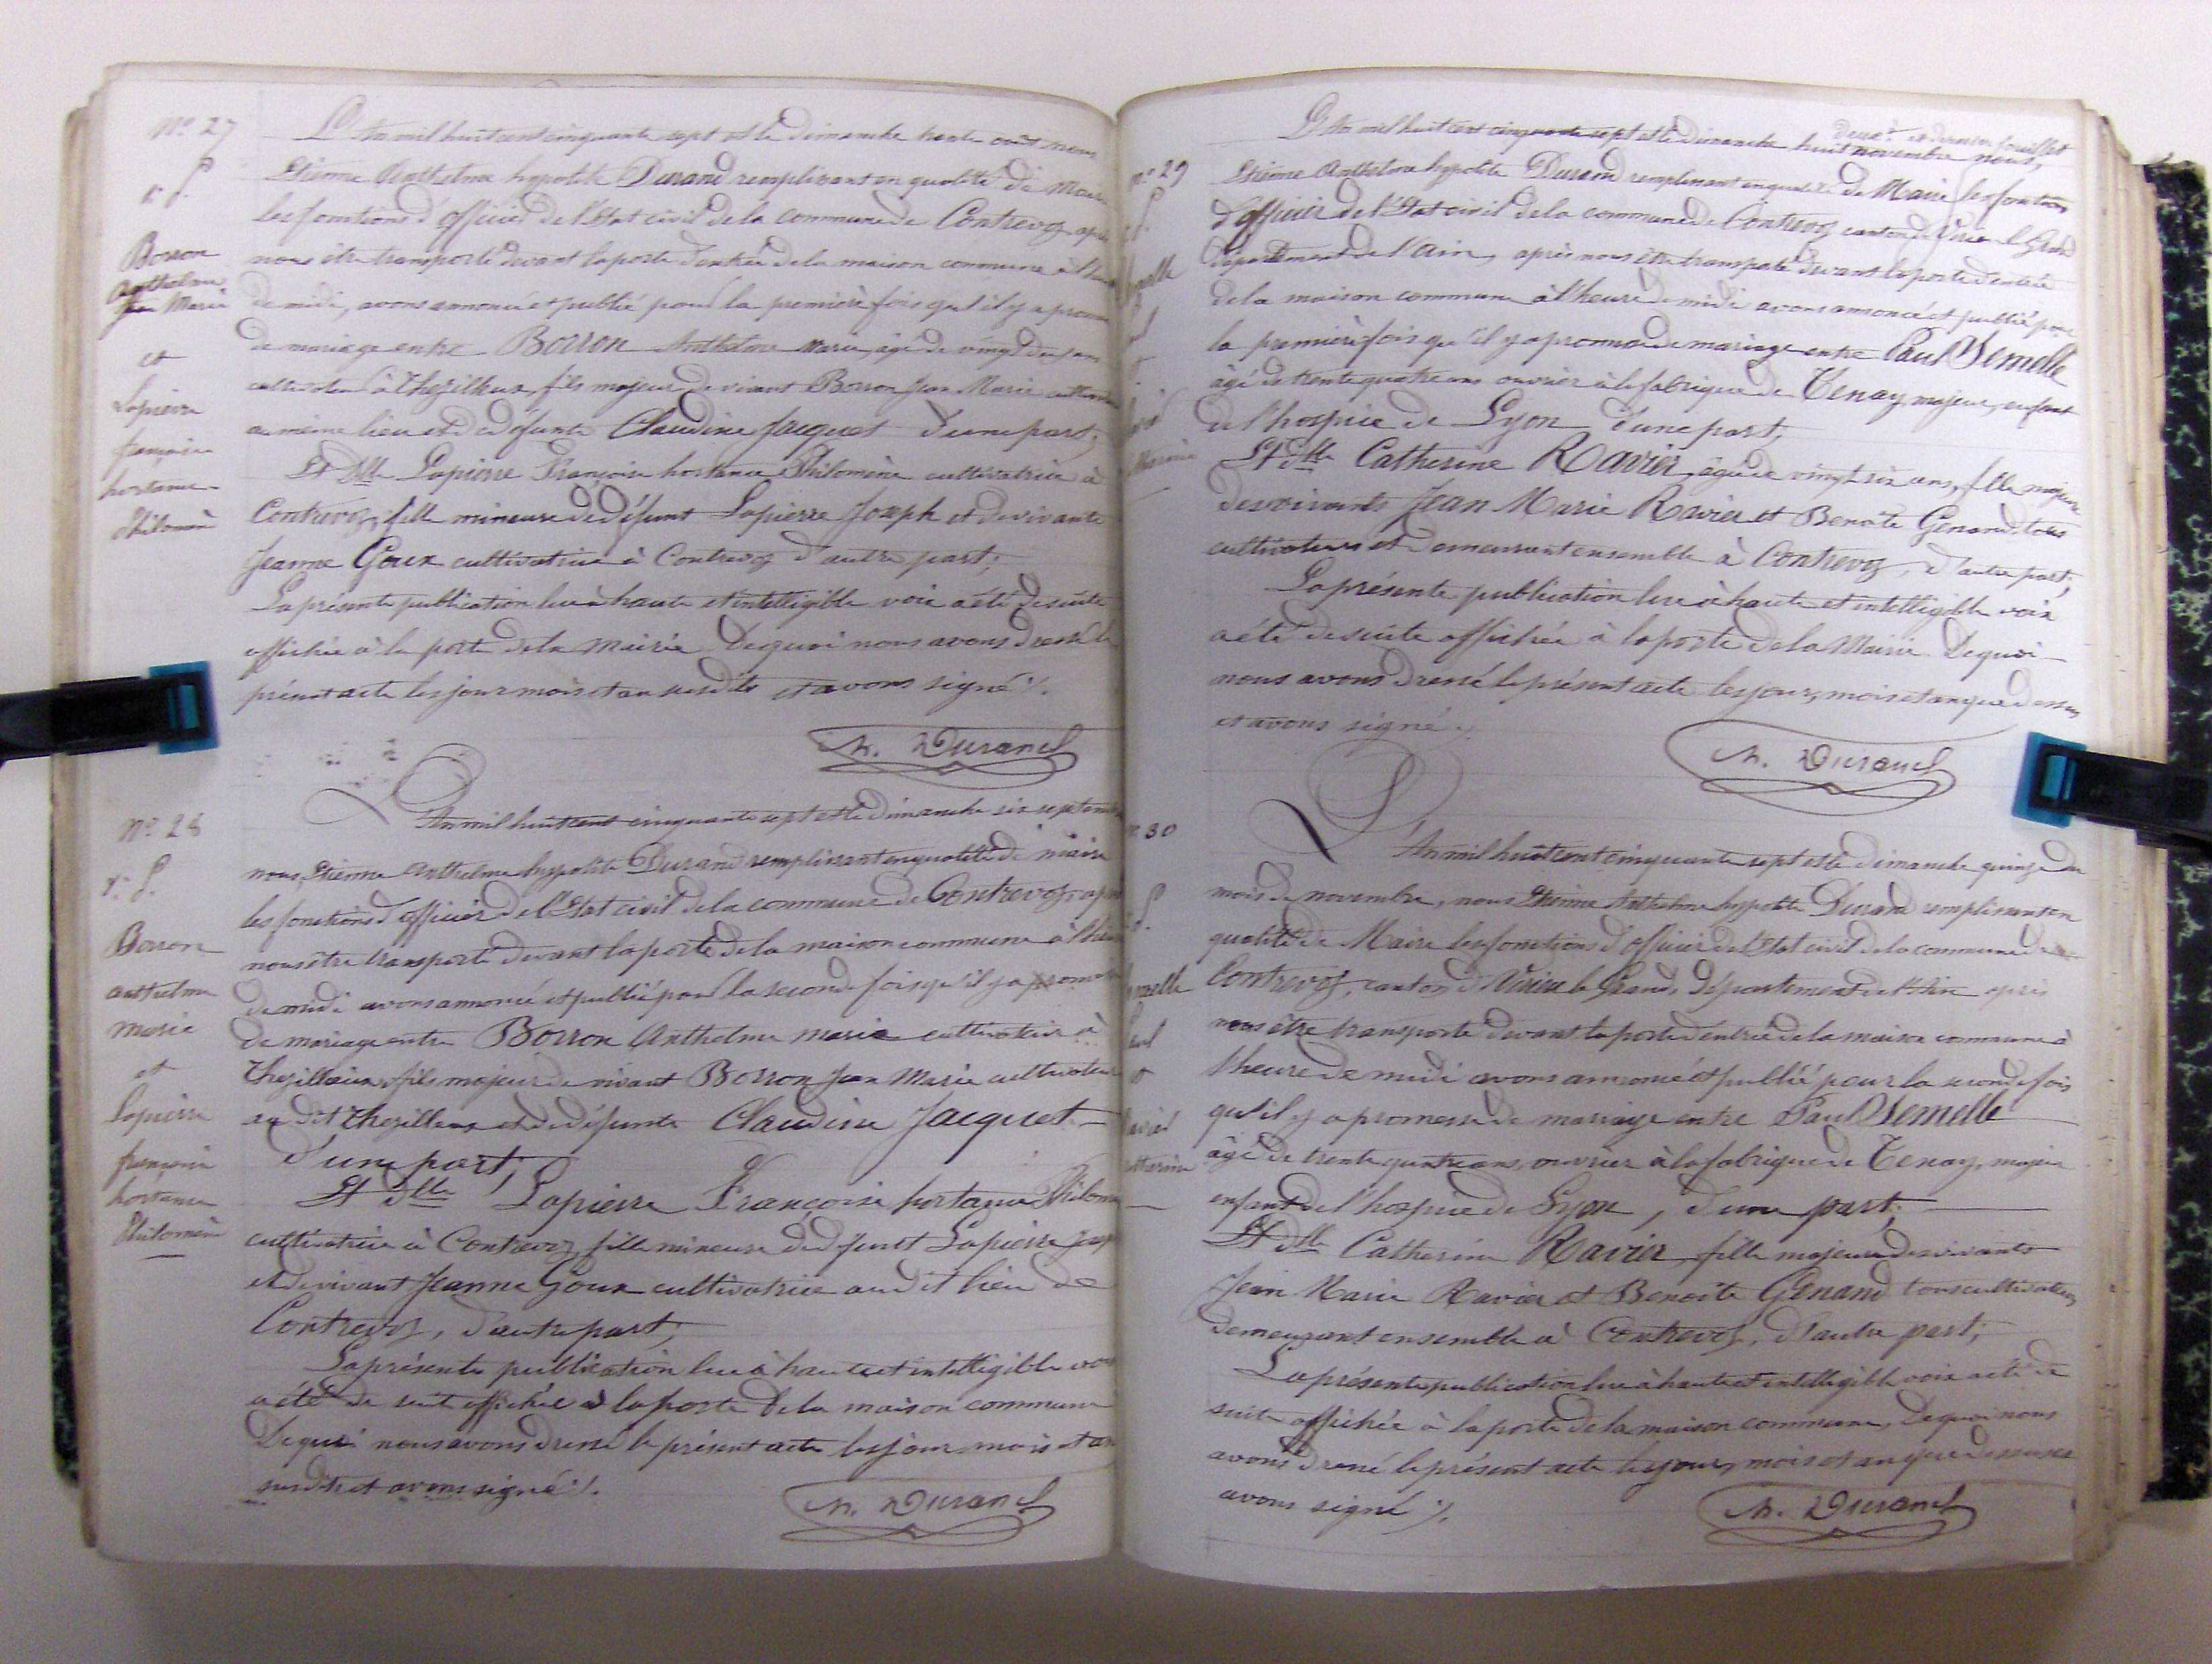 N° 27
Borron
Anthelme
Jean Marie
et
Lapierre
françoise
hortance
Philomène
L'An mil huit cent cinquante sept et le Dimanche trente août nous
Etienne Anthelme hypolite Durand remplissant en qualité de Maire
les fonctions d'officier de l'Etat civil de la commune de Contrevoz, après
nous être transporté devant la porte d'entrée de la maison commune à l'heure
de midi, avons annoncé et publié pour la première fois qu'il y a promesse
de mariage entre Borron Anthelme Marie, âgé de vingt deux ans
cultivateur à Thezillieux, fils majeur de vivant Borron Jean Marie cultivateur
au même lieu et de défunte Claudine Jacquet d'une part;
Et Dlle Lapierre Françoise hortance Philomène cultivatrice à
Contrevoz, fille mineure de défunt Lapierre Joseph et de vivante
Jeanne Goux cultivatrice à Contrevoz d'autre part;
La présente publication lue à haute et intelligible voix a été de suite
affichée à la porte de la Mairie. De quoi nous avons dressé le
présent acte les jour mois et an susdits et avons signé ./.
Durand
N° 28
Borron
anthelme
marie
et
Lapierre
françoise
hortance
Philomène
L'An mil huit cent cinquante sept et le Dimanche six septembre
nous, Etienne Anthelme hyppolite Durand remplissant en qualité de maire
les fonctions d'officier de l'Etat civil de la commune de Contrevoz, après
nous être transporté devant la porte de la maison commune à l'heure
de midi avons annoncé et publié pour la seconde fois qu'il y a promesse
de mariage entre Borron Anthelme marie cultivateur à
Thezillieux, fils majeur de vivant Borron Jean Marie cultivateur
au dit Thezillieux et de défunte Claudine Jacquet
d'une part;
Et Dlle Lapierre Françoise hortance Philomène
cultivatrice à Contrevoz, fille mineure de défunt Lapierre Joseph
et de vivant Jeanne Goux cultivatrice au dit lieu de
Contrevoz, d'autre part;
La présente publication lue à haute et intelligible voix
a été de suite affichée à la porte de la maison commune
De quoi nous avons dressé le présent acte les jour, mois et an
susdits et avons signé ./.
Durand
deuxe et dernier feuillet
n° 29
L'An mil huit cent cinquante sept et le dimanche huit novembre nous,
Etienne Anthelme hypolite Durand remplissant en qualité de Maire les fonctions
d'officier de l'Etat civil de la commune de Contrevoz canton de Virieu le Grand
Département de l'Ain, après nous être transporté devant la porte d'entrée
de la maison commune à l'heure de midi avons annoncé et publié pour
la première fois qu'il y a promesse de mariage entre Paul Semelle
âgé de trente quatre ans ouvrier à la fabrique de Tenay, majeur, enfant
de l'hospice de Lyon d'une part,
Et Dlle Catherine Ravier, âgée de vingt six ans, fille majeure
des vivants Jean Marie Ravier et Benoîte Genand, tous
cultivateurs et demeurant ensemble à Contrevoz, d'autre part;
La présente publication lue à haute et intelligible voix
a été de suite affichée à la porte de la Mairie. De quoi
nous avons dressé le présent acte les jour, mois et an que dessus
et avons signé ./.
Durand
n° 30
L'An mil huit cent cinquante sept et le dimanche quinze du
mois de novembre, nous Etienne Anthelme hypolite Durand remplissant en
qualité de Maire les fonctions d'officier de l'Etat civil de la commune de
Contrevoz, canton de Virieu le Grand, Département de l'Ain après
nous être transporté devant la porte d'entrée de la maison commune à
l'heure de midi avons annoncé et publié pour la seconde fois
qu'il y a promesse de mariage entre Paul Semelle
âgé de trente quatre ans, ouvrier à la fabrique de Tenay, majeur
enfant de l'hospice de Lyon, d'une part;
Et Dlle Catherine Ravier fille majeure des vivants
Jean Marie Ravier et Benoite Genand tous cultivateurs
demeurant ensemble à Contrevoz, d'autre part;
La présente publication lue à haute et intelligible voix a été de
suite affichée à la porte de la maison commune, De quoi nous
avons dressé le présent acte les jour, mois et an que dessus et
avons signé ./.
Durand